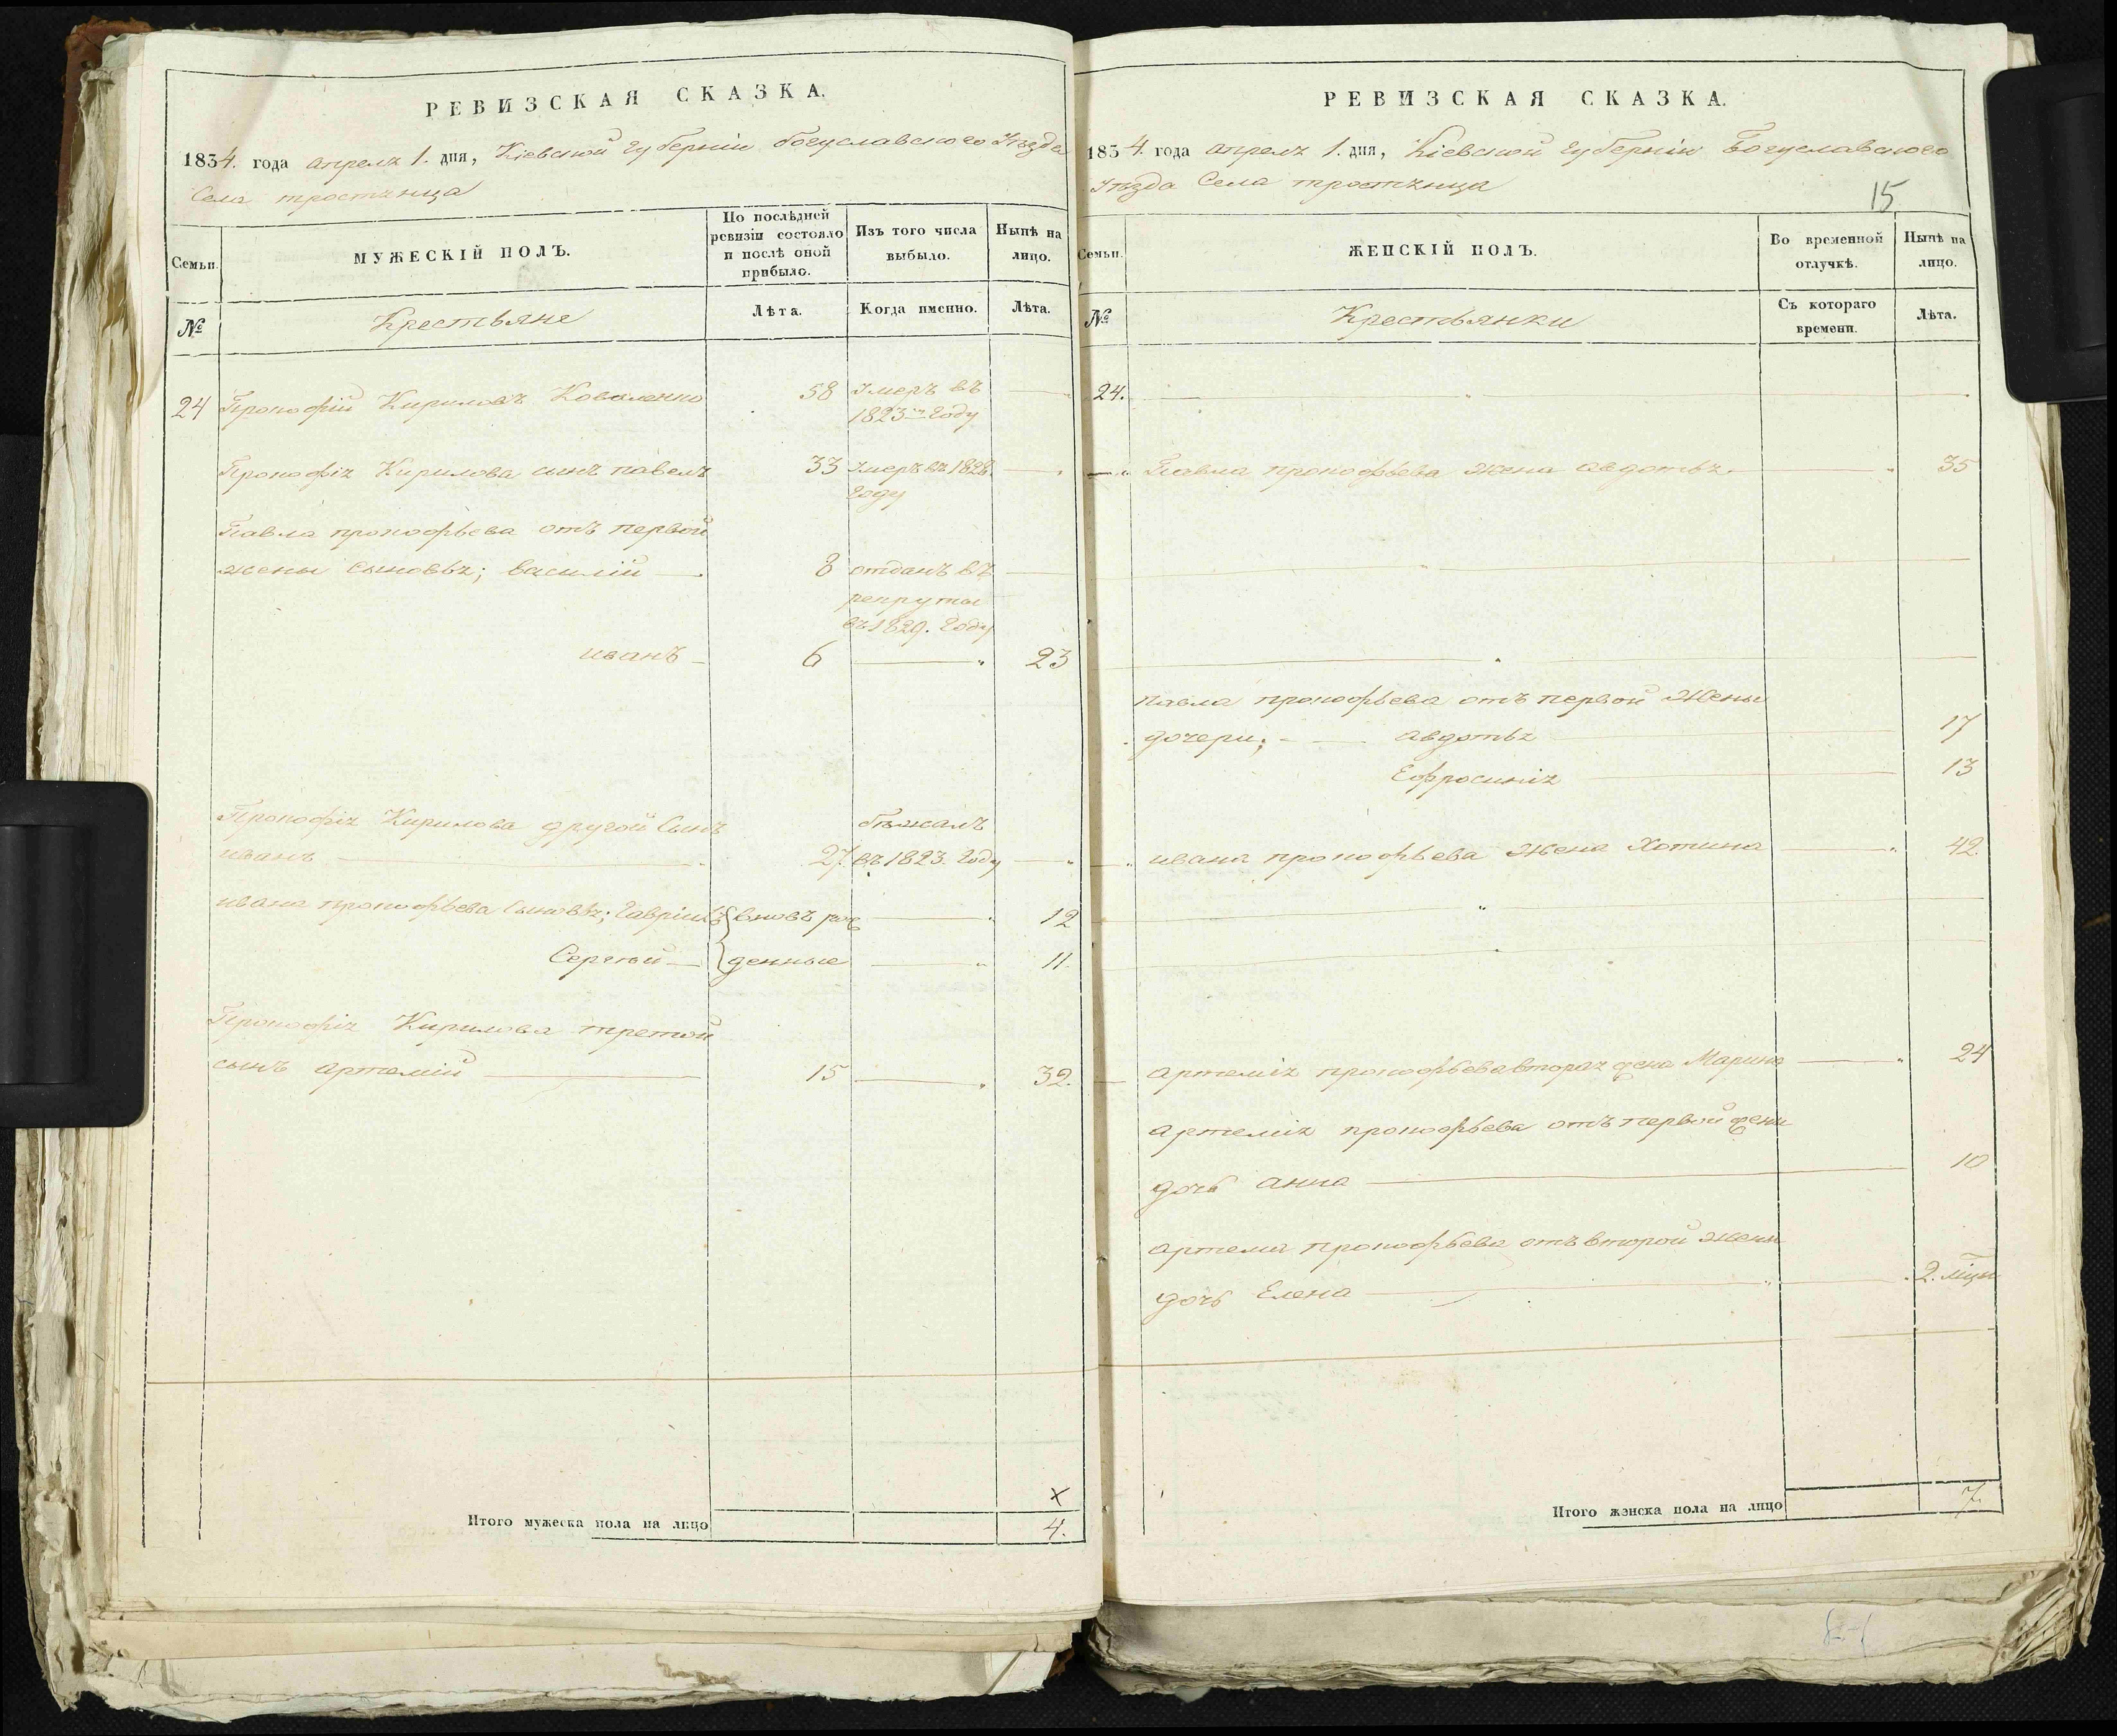 РЕВИЗСКАЯ СКАЗКА.
1834. года апреля 1. дня, Кіевской губерніи богуславского Уѣзда
Села тростянца
Семьи.
МУЖЕСКІЙ ПОЛЪ.
По послѣдней ревизіи состояло и послѣ оной прибыло.
Изъ того числа выбыло.
Нынѣ на лицо.
№
Крестьяне
Лѣта.
Когда именно.
Лѣта.
24 Прокофій Кириловъ Коваленко 58 Умеръ въ
1823м году
Прокофія Кирилова сынъ павелъ 33 Умеръ въ 1828
году
Павла прокофьева отъ первой
жены сыновья; василій 8 отданъ въ
рекруты
въ 1829. году
иванъ 6 23
Прокофія Кирилова другой Сынъ бѣжалъ
иванъ 27. въ 1823. году
ивана прокофьева Сыновья; гавріилъ вновь рож 12
Сергѣй денные 11.
Прокофія Кирилова третой
сынъ артемій 15 32.
Итого мужеска пола на лицо 4.
РЕВИЗСКАЯ СКАЗКА.
1834. года апреля 1. дня, Кіевской губерніи Богуславского
Уѣзда Села тростянца
15
Семьи.
ЖЕНСКІЙ ПОЛЪ.
Во временной отлучкѣ.
Нынѣ на лицо.
№
Крестьянки
Съ котораго времени.
Лѣта.
24.
Павла прокофьева жена авдотья 35
павла прокофьева отъ первой жены
дочери; авдотья 17
Ефросинія 13
ивана прокофьева жена Хотина 42.
артемія прокофьева вторая жена Марина 24
артемія прокофьева отъ первой жены
дочь анна 10
артемия прокофьева отъ второй жены
дочь Елена 2. мѣц
Итого женска пола на лицо 7.